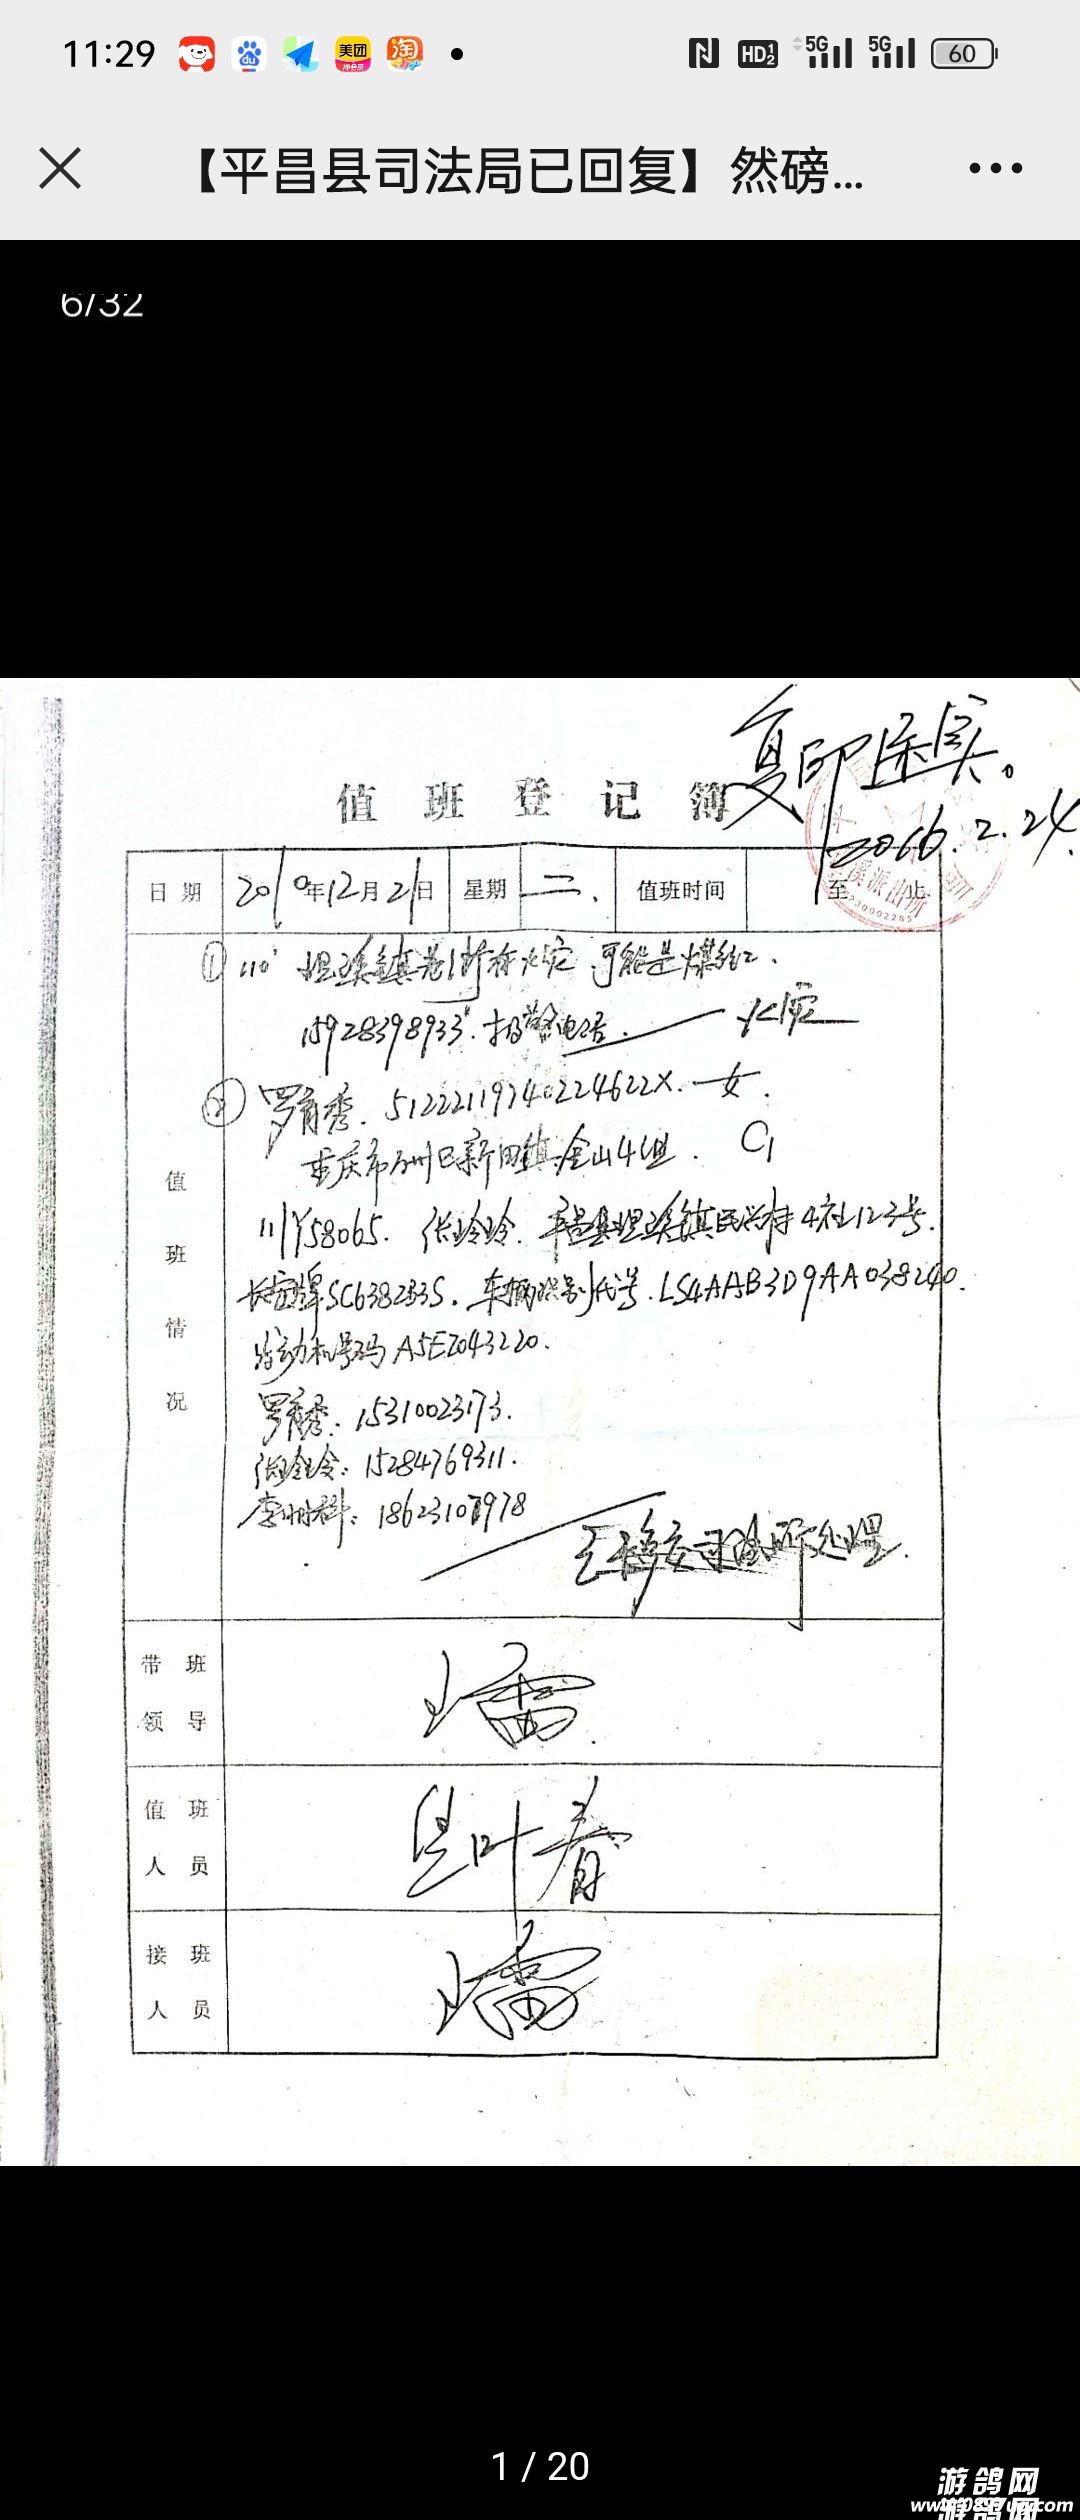 11:29
HD 5G 5G 60
【平昌县司法局已回复】然磅...
6/32
复印属实。
值班登记簿
2016.2.24
日期 2010年12月21日 星期 二. 值班时间 至 止
派出所
① 110' 坦溪镇 可能是煤气.
15928398933. 报警电话. 火灾
② 罗 秀. 51222119740224622X. 女.
重庆市万州区新田镇金山4组. C1
川Y58065. 张玲玲. 平昌县坦溪镇民兴村4社123号.
长安牌SC6382B3S. 车辆识别代号. LS4AAB3D9AA038240.
发动机号码 A5EZ043220.
罗 秀. 15310023173.
张玲玲: 15284769311.
李 科: 18623107978
已移交司法所处理.
值班情况
带班领导
值班人员
接班人员
1 / 20
游鸽网